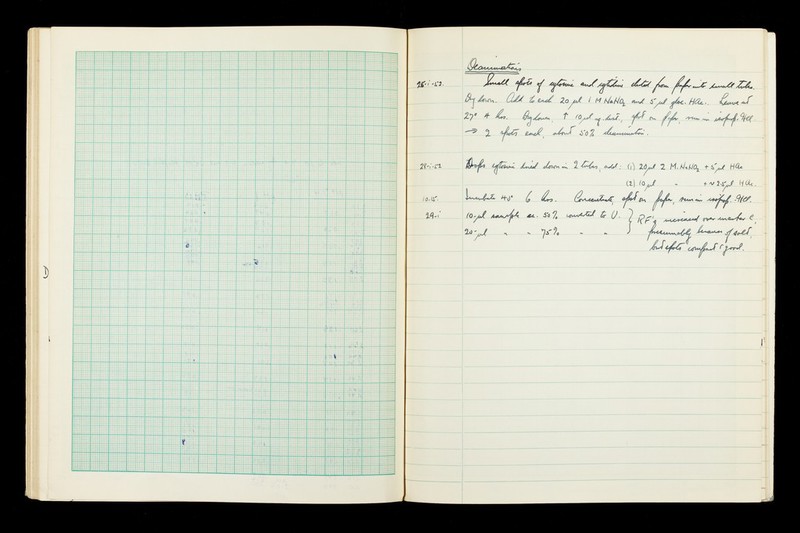 Deamination
25.i.52. Small spots of cytosine and cytidine eluted from paper into small tubes.
Dry down. Add to each 20 µl 1 M NaNO2 and 5 µl glac. HAc. Leave at
27° 4 hrs. Dry down. ↑ 10 µl of dist., spot on paper, run in isoprop. HCl
→ 2 spots each, about 50% deamination.
28-i-52 cytosine dried down in 2 tubes, add: (1) 20µl 2 M. NaNO2 + 5µl HAc
(2) 10µl " + ~ 2.5µl HAc.
10.15. Incubate 45° 6 hrs. Concentrate, spot on paper, run in isoprop. HCl.
29.i 10µl sample ca. 50% converted to U. } RF's increased over marker C,
20µl " " 75% " " } presumably because of salt,
but spots compact & good.